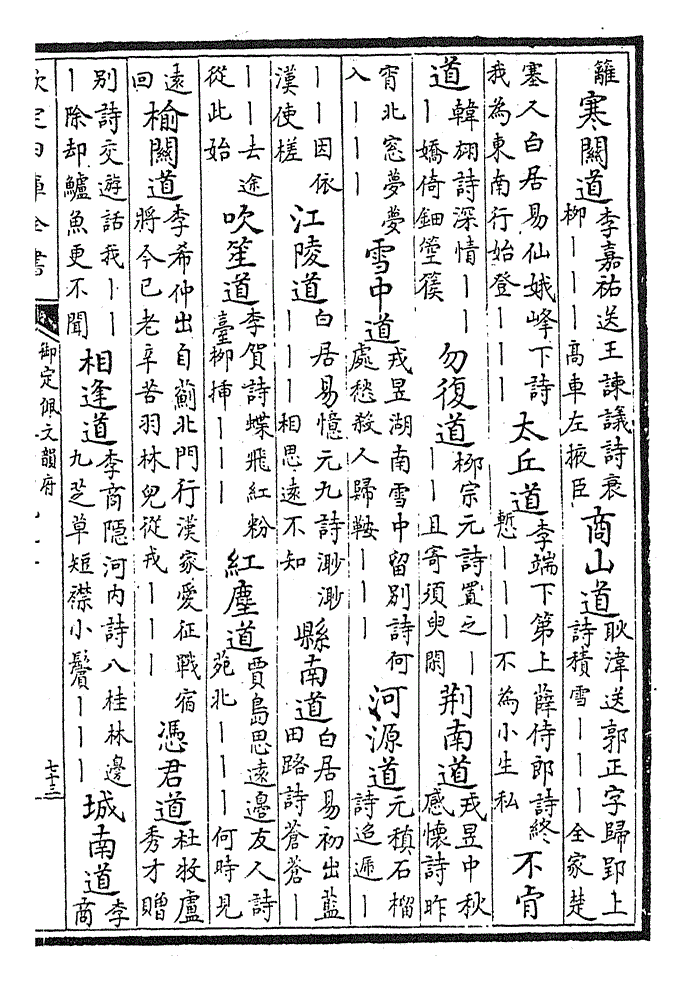 籬 寒關道 李嘉祐送王諫議詩衰柳丨丨丨高車左掖臣 商山道 耿湋送郭正字歸郢上詩積雪丨丨丨全家楚
塞人白居易仙娥峰下詩我為東南行始登丨丨丨 太丘道 李端下第上薛侍郎詩終慙丨丨丨不為小生私 不肯
道 韓翃詩深情丨丨丨嬌倚鈿箜篌 勿復道 柳宗元詩置之丨丨丨且寄須臾閑 荆南道 戎昱中秋感懷詩昨
宵北窓夢夢入丨丨丨 雪中道 戎昱湖南雪中留別詩何處愁殺人歸鞍丨丨丨 河源道 元稹石榴詩迢遞丨
丨丨因依漢使槎 江陵道 白居易憶元九詩渺渺丨丨丨相思遠不知 縣南道 白居易初出藍田路詩蒼蒼丨
丨丨去途從此始 吹笙道 李賀詩蝶飛紅粉臺柳掃丨丨丨 紅塵道 賈島思遠邊友人詩苑北丨丨丨何時見
遠回 榆關道 李希仲出自薊北門行漢家愛征戰宿將今已老辛苦羽林兒從戎丨丨丨 憑君道 杜牧盧秀才贈
別詩交遊話我丨丨丨除却鱸魚更不聞 相逢道 李商隱河內詩八桂林邊九芝草短襟小鬢丨丨丨 城南道 李商
欽定四庫全書 御定佩文韻府 七十三